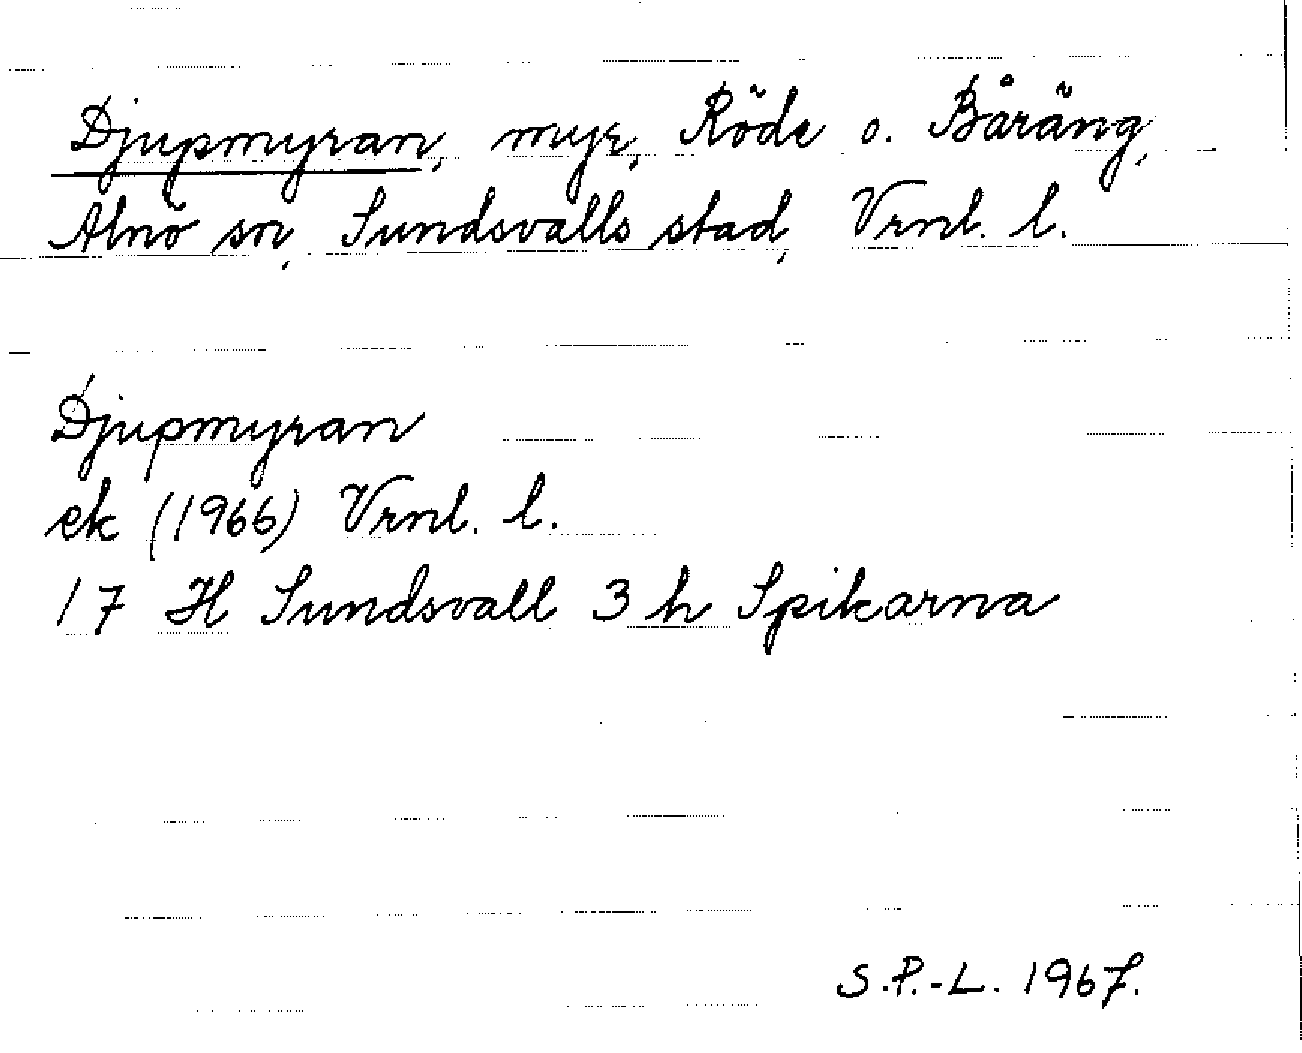 Djupmyran, myr, Röde o. Båräng,
Alnö sn, Sundsvalls stad, Vrnl. l.
Djupmyran
ek (1966) Vrnl. l.
17 H Sundsvall 3 h Spikarna
S.P.-L. 1967.